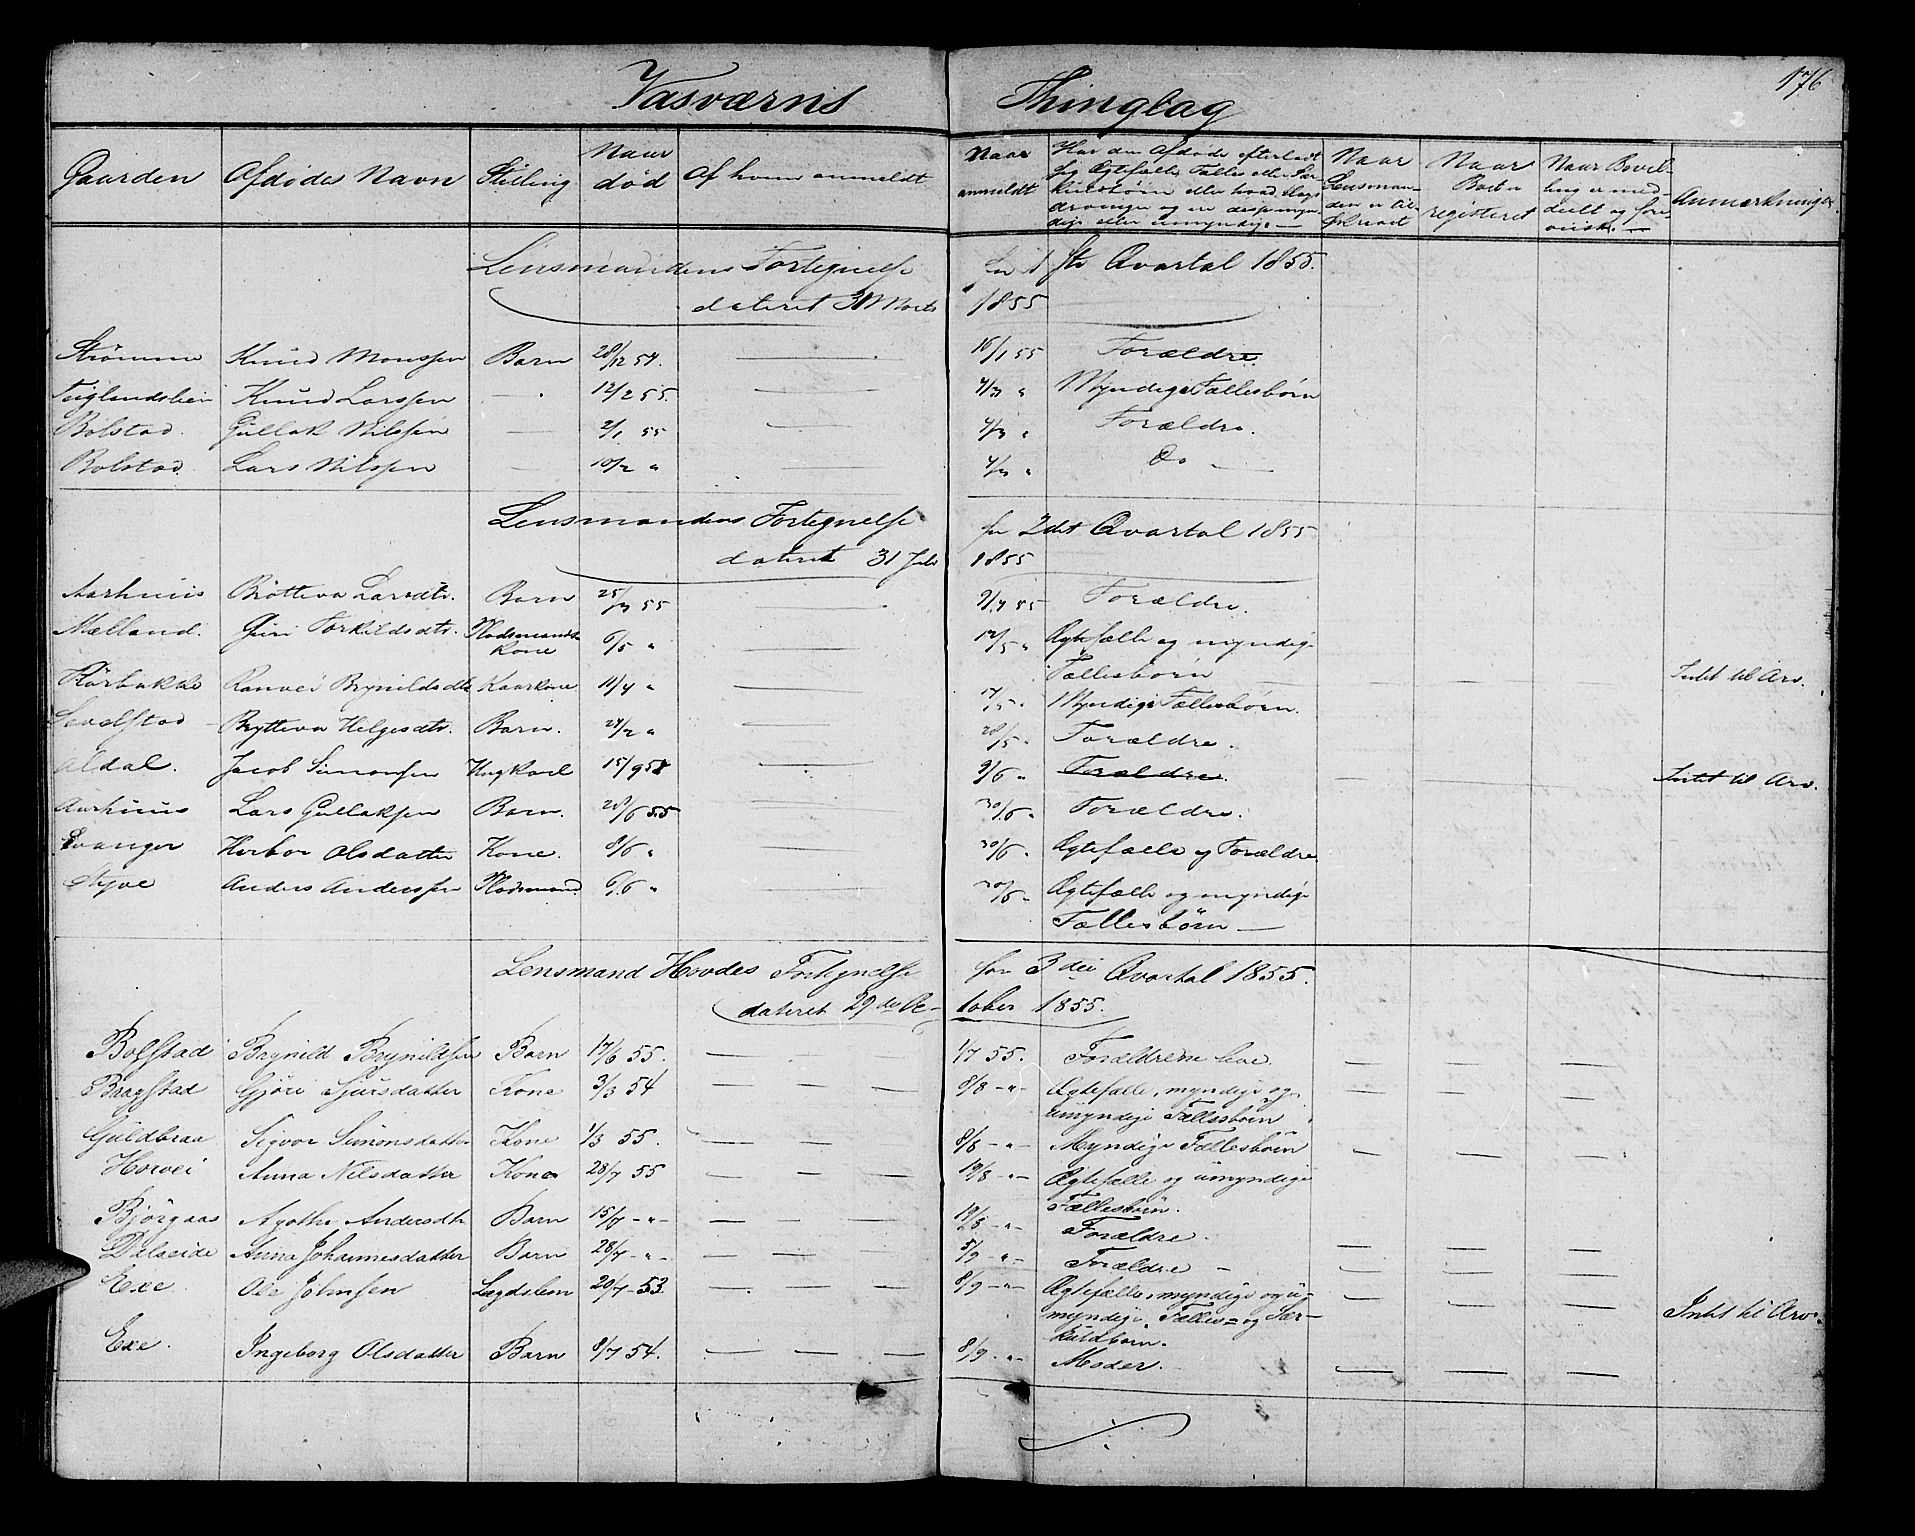 Vasværns Thinglag
176
Gaarden | Afdødes Navn | Stilling | Naar død | Af hvem anmeldt | Naar anmeldt | Har den Afdøde efterladt sig Ægtefælle, Fælles eller Særkuldsbørn eller hvad Slags Arvinger og ere disse myndige eller umyndige | Naar Lensmanden er tilskrevet | Naar Boet er registeret | Naar Bevilling er meddeelt og forevist | Anmærkninger
Lensmandens Fortegnelse for 1ste Qvartal 1855.
dateret 31 Marts 1855
Strømme | Knud Monssen | Barn | 28/12 54. | — | 16/1 55 | Forældre
Teiglandslien | Knud Larssen | — | 12/2 55. | — | 4/3 " | Myndige Fællesbørn
Bolstad | Gullak Nilssen | — | 2/1 55 | — | 4/3 " | Forældre.
Bolstad | Lars Nilssen | — | 10/2 " | 4/3 " | Do —
Lensmandens Fortegnelse for 2det Qvartal 1855
dateret 31 Juli 1855
Aarhuus | Brötteva Larsdtr. | Barn | 25/3 55 | — | 9/4 55 | Forældre.
Mælland. | Guri Torkildsdtr. | Pladsmands Kone | 6/5 " | — | 12/5 " | Ægtefælle og myndige
Fællesbörn
Hørbakke | Ranvei Brynildsdtr | Kaarkone | 11/4 " | — | 17/5 " | Myndige Fællesbørn. | Intet til Arv.
Sevalstad | Brytteva Helgesdtr. | Barn. | 24/2 " | — | 28/5 " | Forældre.
Aldal. | Jacob Simonsen | Ungkarl | 15/9 54 | — | 9/6 " | Forældre. | — | — | — | Intet til Arv.
Aarhuus | Lars Gullaksen | Barn. | 28/6 55 | — | 30/6 " | Forældre.
Evanger | Herbor Olsdatter | Kone. | 8/6 " | — | 30/6 " | Ægtefælle og Forældre
Styve | Anders Anderssen | Pladsmand | 6/6 " | — | 30/6 " | Ægtefælle og myndige
Fællesbørn —
Lensmand Hovdes Fortegnelse for 3die Qvartal 1855.
dateret 29de October 1855.
Bolstad | Brynild Brynildsen | Barn | 17/6 55. | — | 1/7 55. | Forældrene leve. | — | — | —
Braastad | Gjöri Sjursdatter | Kone | 3/3 54 | — — — | 8/8 -"- | Ægtefælle, myndige og
umyndige Fællesbörn | — | — | —
Guldbraa | Sigvor Simonsdatter | Kone | 1/3 55. | — — — | 8/8 -"- | Myndige Fællesbörn | — | — | —
Horvei | Anna Nilsdatter | Kone | 28/7 55 | — — — | 19/8 -"- | Ægtefælle og umyndige
Fællesbörn.
Björgaas | Agathe Andersdtr | Barn | 15/7 -"- | — — — | 19/8 -"- | Forældre. | — | — | —
Dalseide | Anna Johannesdatter | Barn | 28/7 -"- | — — — | 5/9 -"- | Forældre — | — | — | —
Exe | Ole Johnsen | Lægdslem | 20/7 - 53. | — — — | 8/9 -"- | Ægtefælle, myndige og u-
myndige Fælles- og Sær-
kuldbörn. | — | — | — | Intet til Arv.
Exe. | Ingeborg Olsdatter | Barn | 8/7 54. | — — — | 8/9 -"- | Moder. | — | — | —